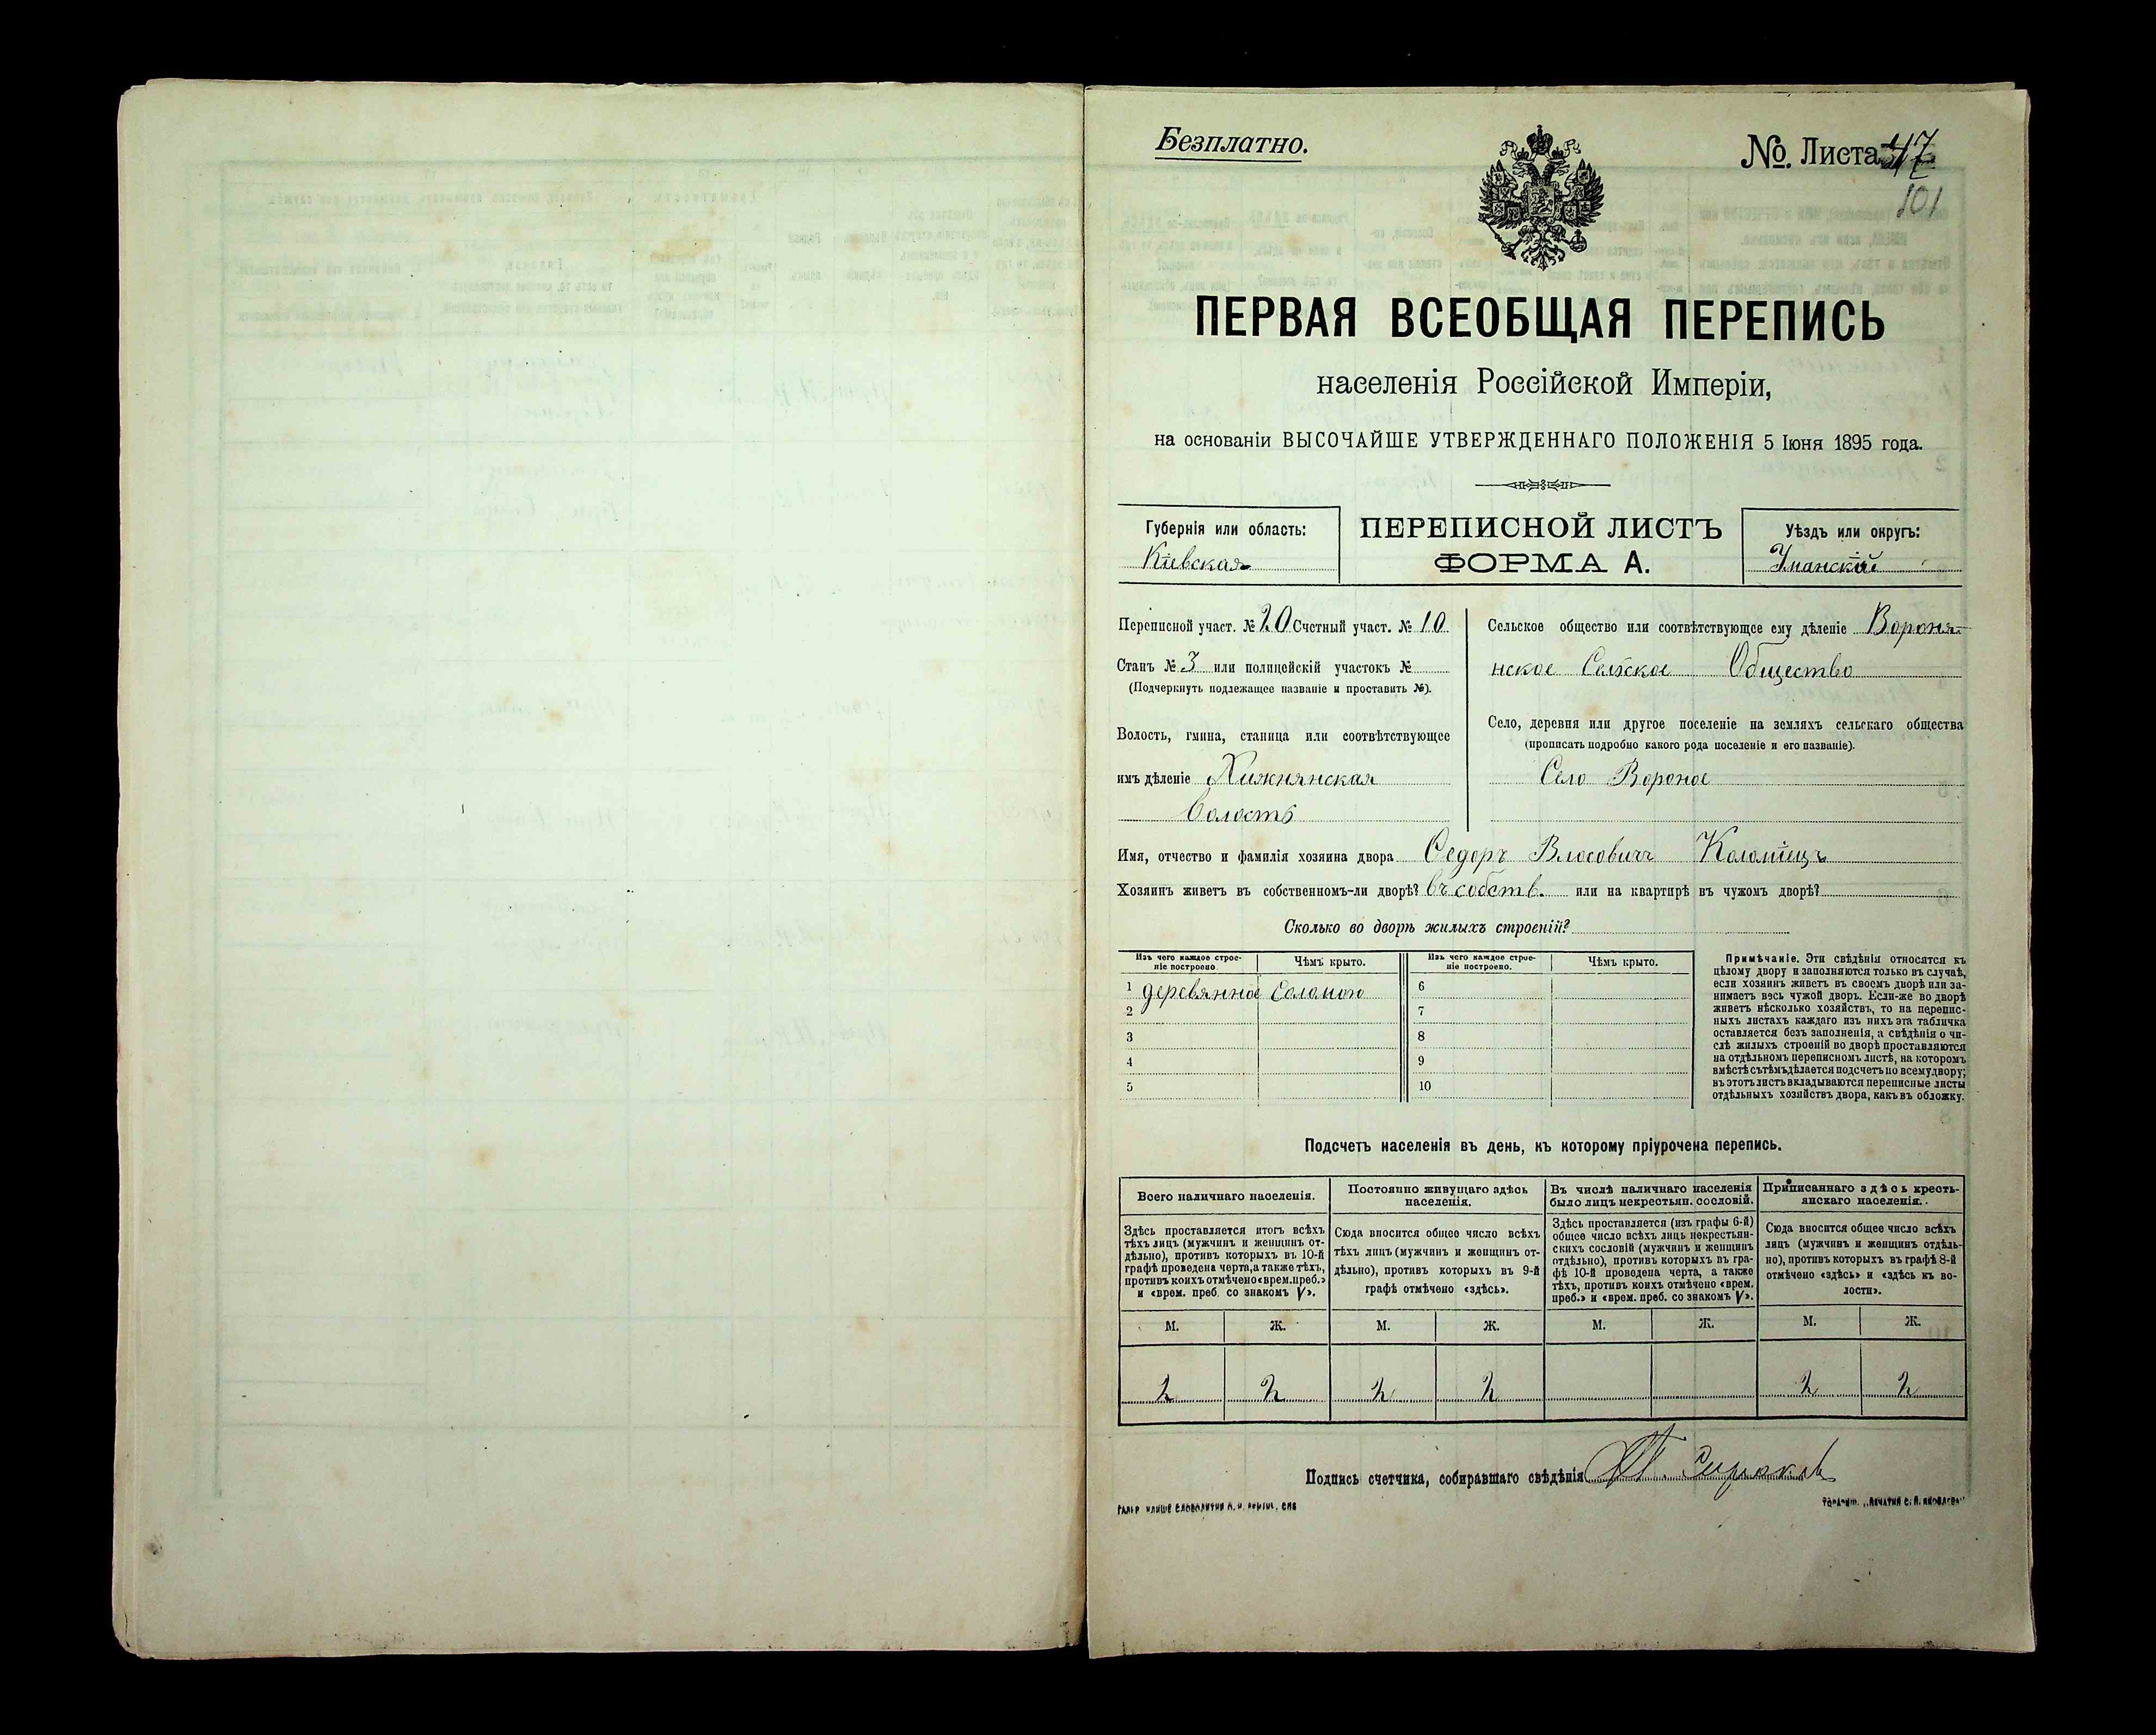 Безплатно.
№. Листа 47
101
ПЕРВАЯ ВСЕОБЩАЯ ПЕРЕПИСЬ
населенія Россійской Имперіи,
на основаніи ВЫСОЧАЙШЕ УТВЕРЖДЕННАГО ПОЛОЖЕНІЯ 5 Іюня 1895 года.
Губернія или область:
Кіевская
ПЕРЕПИСНОЙ ЛИСТЪ
ФОРМА А.
Уѣздъ или округъ:
Уманскій
Переписной участ. № 20 Счетный участ. № 10
Станъ № 3 или полицейскій участокъ №
(Подчеркнуть подлежащее названіе и проставить №).
Волость, гмина, станица или соотвѣтствующее
имъ дѣленіе Хижнянская
волость
Сельское общество или соотвѣтствующее ему дѣленіе Вороня-
нское Сельское Общество
Село, деревня или другое поселеніе на земляхъ сельскаго общества
(прописать подробно какого рода поселеніе и его названіе).
Село Вороное
Имя, отчество и фамилія хозяина двора Ѳедоръ Власовичъ Коломіецъ
Хозяинъ живетъ въ собственномъ-ли дворѣ? въ собств. или на квартирѣ въ чужомъ дворѣ?
Сколько во дворѣ жилыхъ строеній?
Изъ чего каждое строе-
ніе построено
Чѣмъ крыто.
Изъ чего каждое строе-
ніе построено.
Чѣмъ крыто.
1 деревянное соломою 6
2 7
3 8
4 9
5 10
Примѣчаніе. Эти свѣдѣнія относятся къ
цѣлому двору и заполняются только въ случаѣ,
если хозяинъ живетъ въ своемъ дворѣ или за-
нимаетъ весь чужой дворъ. Если-же во дворѣ
живетъ нѣсколько хозяйствъ, то на перепис-
ныхъ листахъ каждаго изъ нихъ эта табличка
оставляется безъ заполненія, а свѣдѣнія о чи-
слѣ жилыхъ строеній во дворѣ проставляются
на отдѣльномъ переписномъ листѣ, на которомъ
вмѣстѣ съ тѣмъ дѣлается подсчетъ по всему двору;
въ этотъ листъ вкладываются переписные листы
отдѣльныхъ хозяйствъ двора, какъ въ обложку.
Подсчетъ населенія въ день, къ которому пріурочена перепись.
Всего наличнаго населенія.
Здѣсь проставляется итогъ всѣхъ
тѣхъ лицъ (мужчинъ и женщинъ от-
дѣльно), противъ которыхъ въ 10-й
графѣ проведена черта, а также тѣхъ,
противъ коихъ отмѣчено «врем. преб.»
и «врем. преб. со знакомъ V».
Постоянно живущаго здѣсь
населенія.
Сюда вносится общее число всѣхъ
тѣхъ лицъ (мужчинъ и женщинъ от-
дѣльно), противъ которыхъ въ 9-й
графѣ отмѣчено «здѣсь».
Въ числѣ наличнаго населенія
было лицъ некрестьян. сословій.
Здѣсь проставляется (изъ графы 6-й)
общее число всѣхъ лицъ некрестьян-
скихъ сословій (мужчинъ и женщинъ
отдѣльно), противъ которыхъ въ гра-
фѣ 10-й проведена черта, а также
тѣхъ, противъ коихъ отмѣчено «врем.
преб.» и «врем. преб. со знакомъ V».
Приписаннаго здѣсь кресть-
янскаго населенія.
Сюда вносится общее число всѣхъ
лицъ (мужчинъ и женщинъ отдѣль-
но), противъ которыхъ въ графѣ 8-й
отмѣчено «здѣсь» и «здѣсь къ во-
лости».
М. Ж. М. Ж. М. Ж. М. Ж.
2 2 2 2 2 2
Подпись счетчика, собиравшаго свѣдѣнія